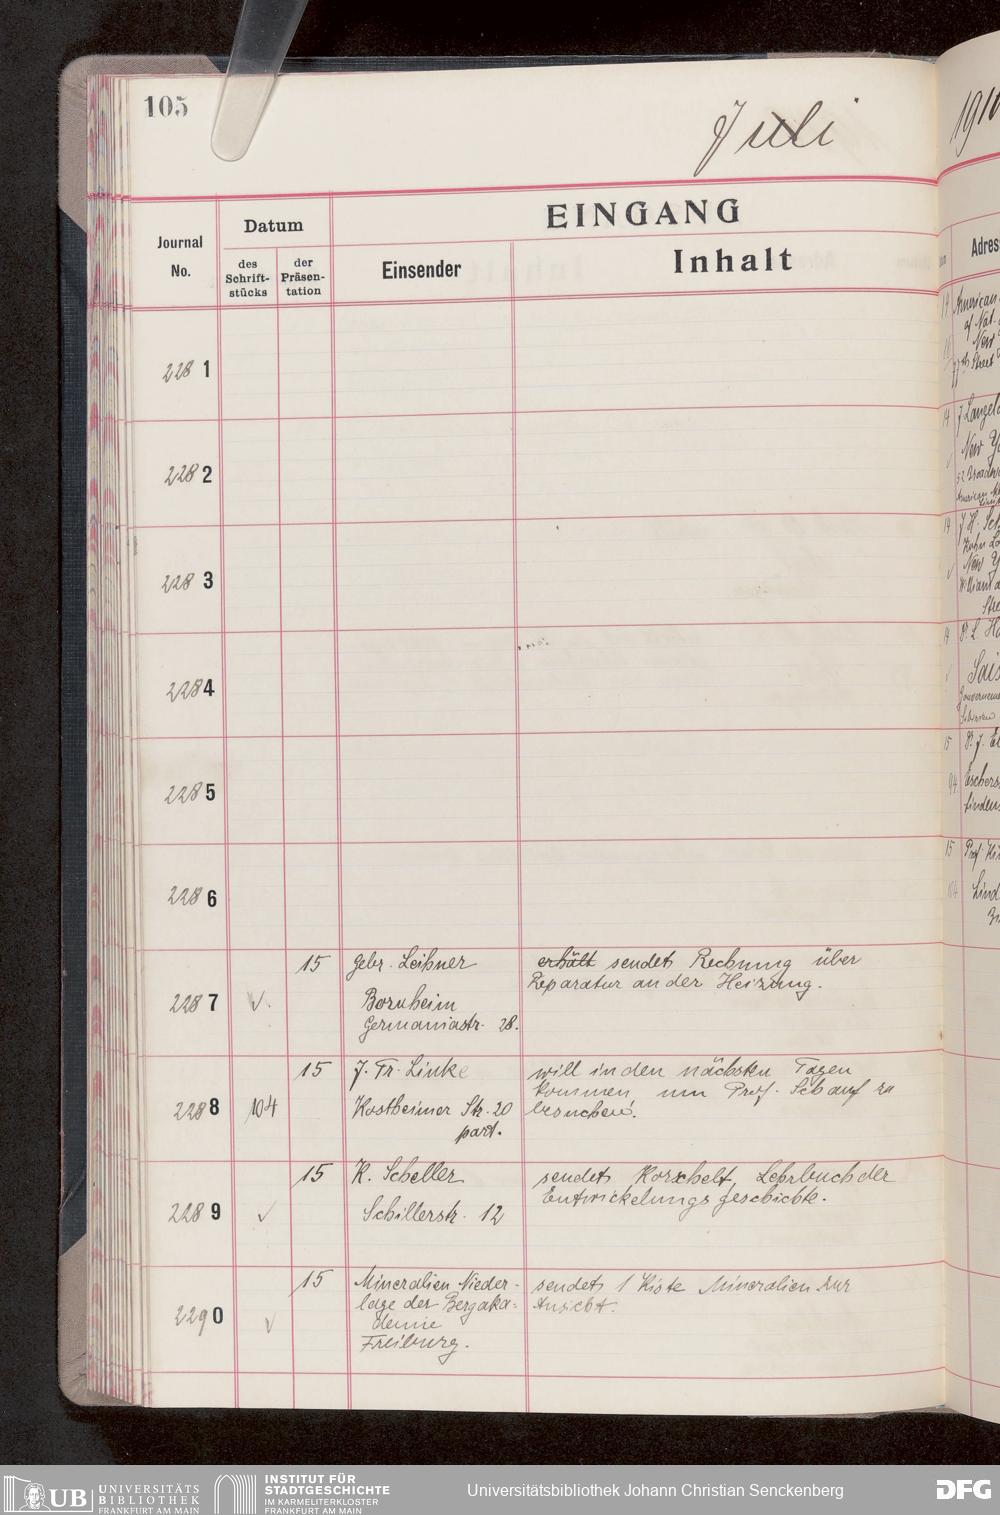 105
Juli
1910
EINGANG
Journal
No.
Datum
des
Schrift-
stücks
der
Präsen-
tation
Einsender
Inhalt
2281
2282
2283
2284
2285
2286
2287
✓
15
Gebr. Leißner
Bornheim
Germaniastr. 28.
erhält sendet Rechnung über
Reparatur an der Heizung.
2288
104
15
J. Fr. Linke
Kostheimer Str. 20
part.
will in den nächsten Tagen
kommen, um Prof. Schauf zu
besuchen.
2289
✓
15
K. Scheller
Schillerstr. 12
sendet Korschelt, Lehrbuch der
Entwickelungsgeschichte.
2290
✓
15
Mineralien Nieder-
lage der Bergaka-
demie
Freiburg.
sendet 1 Kiste Mineralien zur
Ansicht.
14
American
of Nat.
New
77th Street
14
J. Langel
New Y
14
J. H. Sch
Kuhn Lo
New Y
William
Stre
14
15
15
Prof.
UB
UNIVERSITÄTS
BIBLIOTHEK
FRANKFURT AM MAIN
INSTITUT FÜR
STADTGESCHICHTE
IM KARMELITERKLOSTER
FRANKFURT AM MAIN
Universitätsbibliothek Johann Christian Senckenberg
DFG